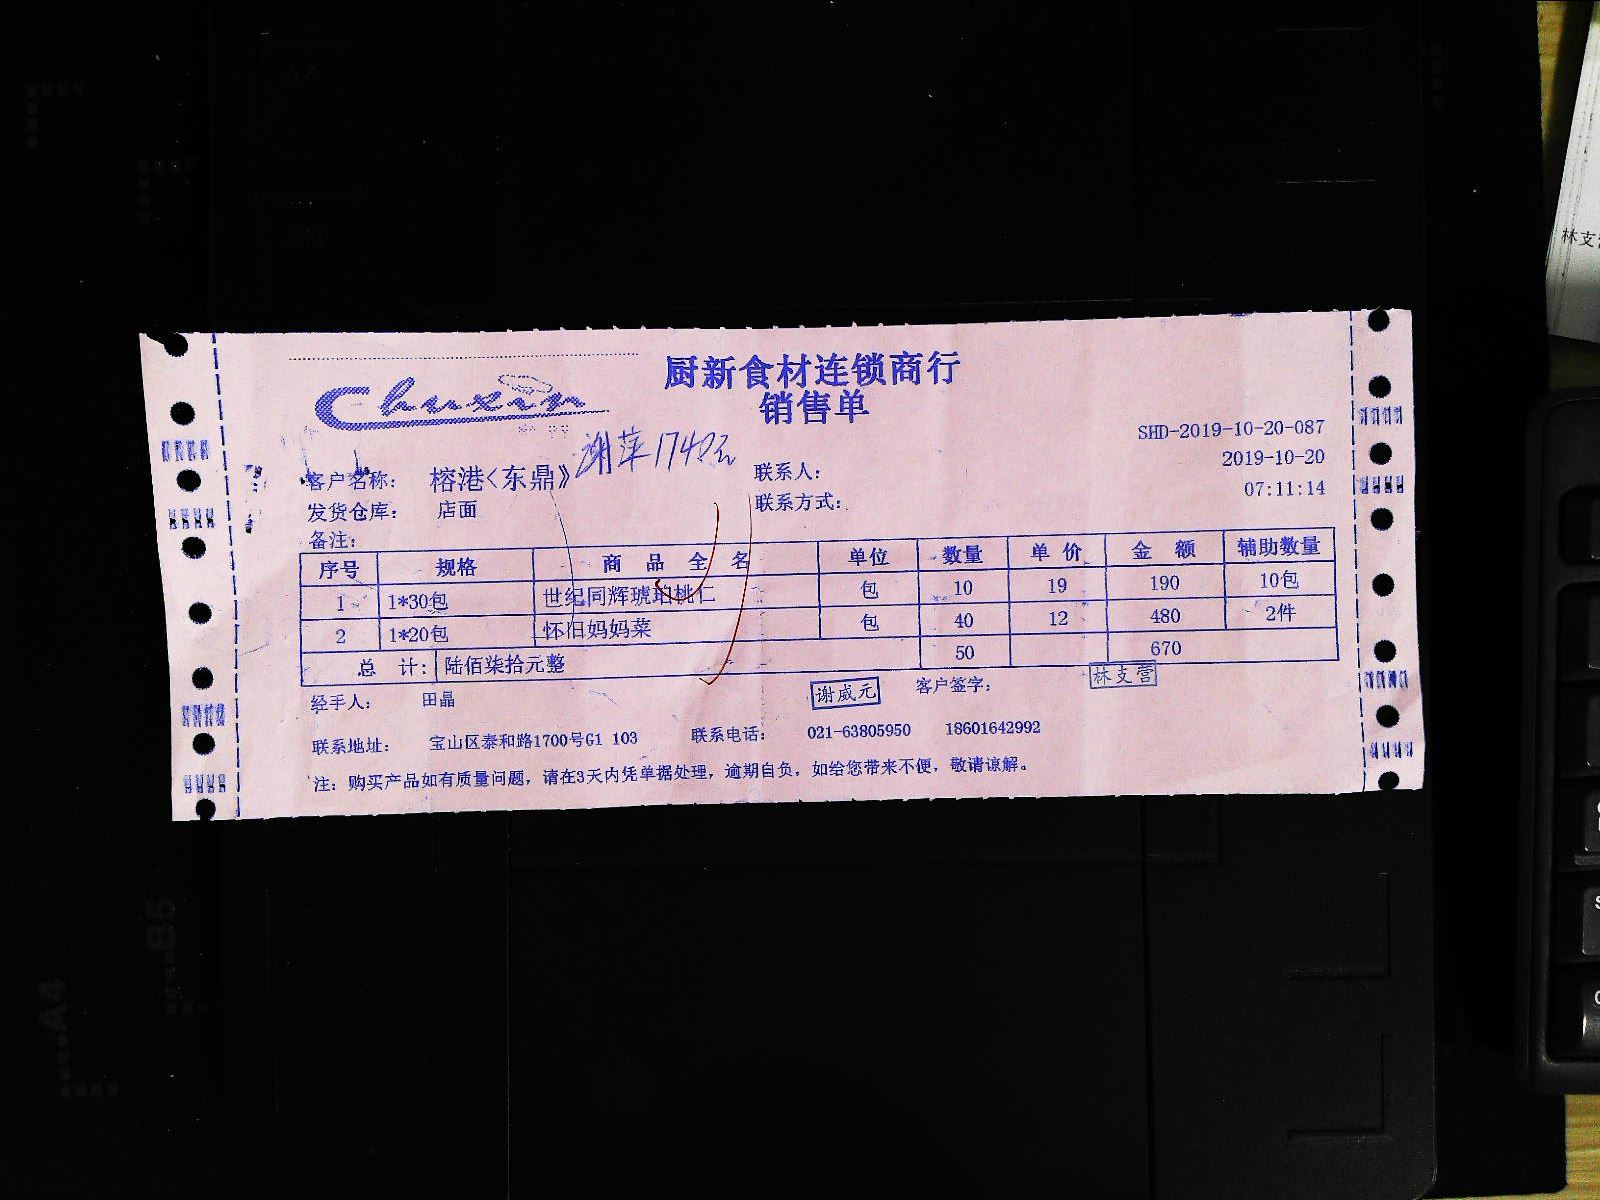 厨新食材连锁商行
Chuxin
销售单
SHD-2019-10-20-087
谢萍1740元
2019-10-20
客户名称: 榕港<东鼎》 联系人:
07:11:14
发货仓库: 店面 联系方式:
备注:
序号 规格 商品全名 单位 数量 单价 金额 辅助数量
1 1*30包 世纪同辉琥珀桃仁 包 10 19 190 10包
2 1*20包 怀旧妈妈菜 包 40 12 480 2件
总计: 陆佰柒拾元整 50 670
经手人: 田晶 谢威元 客户签字: 林支营
联系地址: 宝山区泰和路1700号G1 103 联系电话: 021-63805950 18601642992
注: 购买产品如有质量问题, 请在3天内凭单据处理, 逾期自负, 如给您带来不便, 敬请谅解。
林支
A4
B5